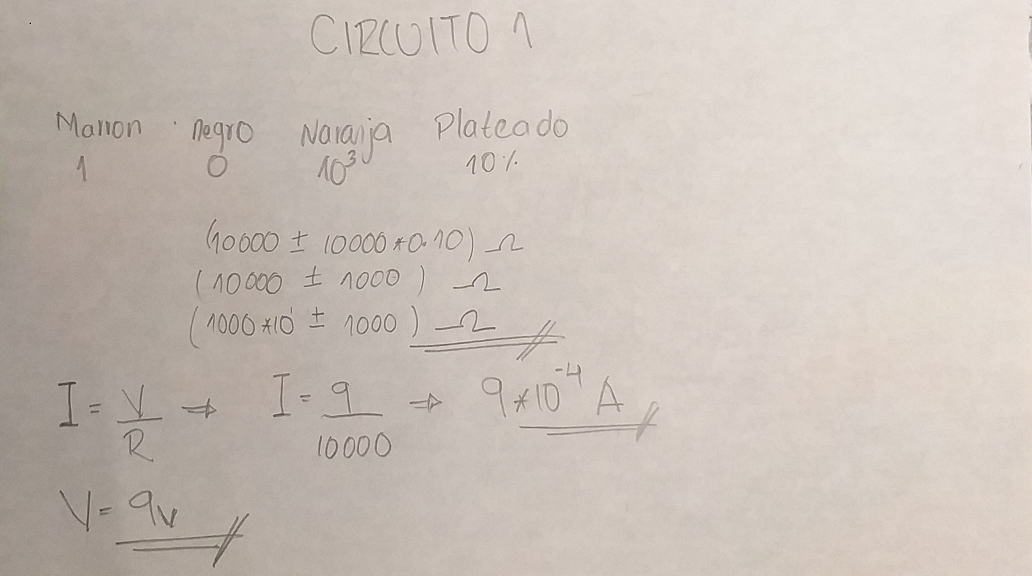 CIRCUITO 1
Marron negro Naranja Plateado
1 0 10³ 10%
(10000 ± 10000*0.10) Ω
(10000 ± 1000) Ω
(1000*10¹ ± 1000) Ω
I = V/R ⇒ I = 9/10000 ⇒ 9*10⁻⁴ A
V = 9v